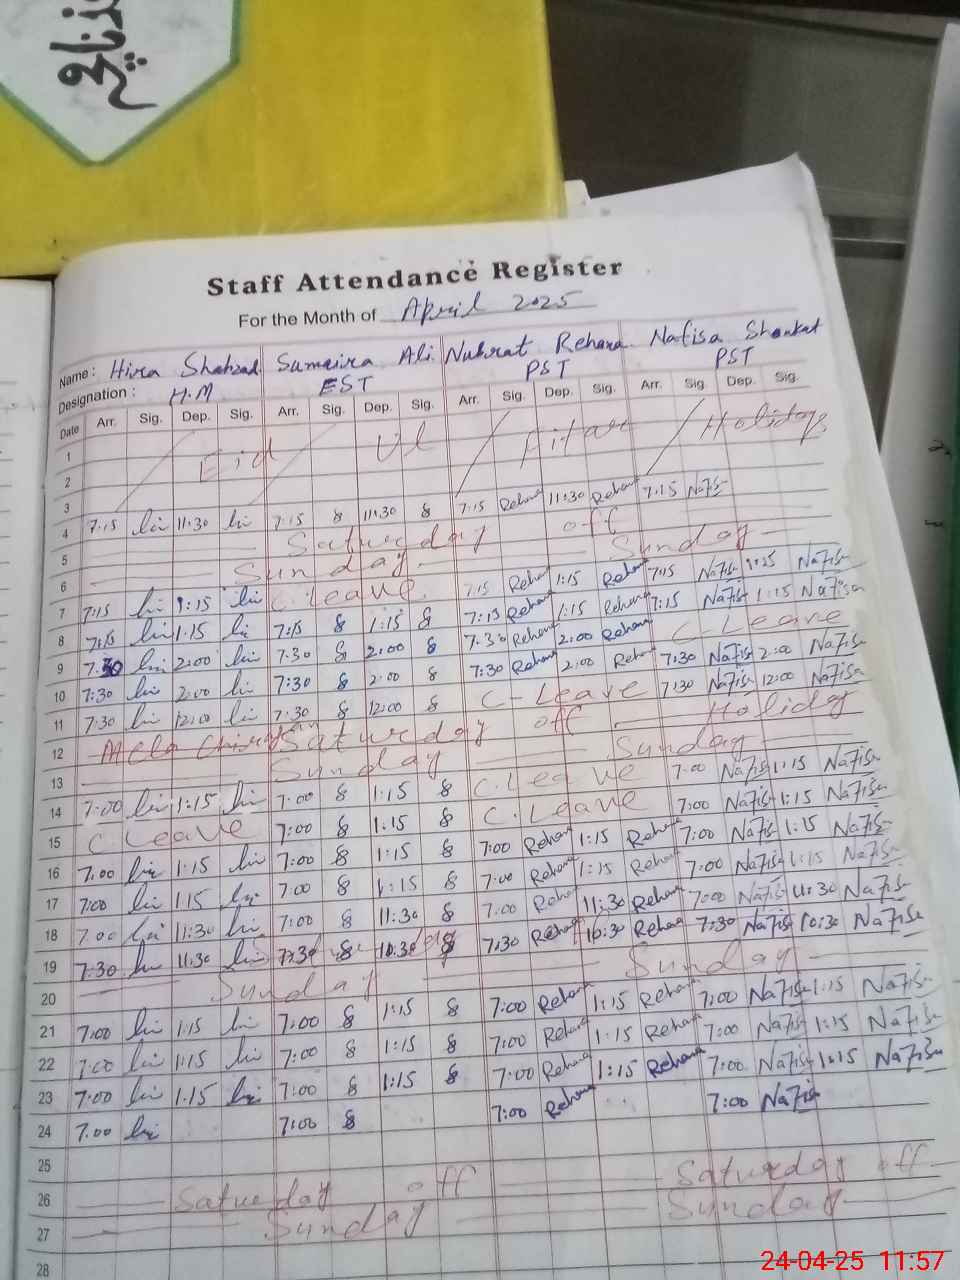 Staff Attendance Register
For the Month of April 2025
Name: Hira Shahzad Sumaira Ali Nuhrat Rehana Nafisa Shaukat
Designation: H.M EST PST PST
Date Arr. Sig. Dep. Sig. Arr. Sig. Dep. Sig. Arr. Sig. Dep. Sig. Arr. Sig. Dep. Sig.
1 Eid Ul Fitar Holidays
2
3
4 7:15 11:30 7:15 8 11:30 8 7:15 Rehana 11:30 Rehana 7:15 Nafisa
5 Saturday off
6 Sunday Sunday
7 7:15 1:15 C.Leave 7:15 Rehana 1:15 Rehana 7:15 Nafisa 1:15 Nafisa
8 7:15 1:15 7:15 8 1:15 8 7:15 Rehana 1:15 Rehana 7:15 Nafisa 1:15 Nafisa
9 7:30 2:00 7:30 8 2:00 8 7:30 Rehana 2:00 Rehana C-Leave
10 7:30 2:00 7:30 8 2:00 8 7:30 Rehana 2:00 Rehana 7:30 Nafisa 2:00 Nafisa
11 7:30 12:00 7:30 8 12:00 8 C-Leave 7:30 Nafisa 12:00 Nafisa
12 Mela Saturday off Holiday
13 Sunday Sunday
14 7:00 1:15 7:00 8 1:15 8 C.Leave 7:00 Nafisa 1:15 Nafisa
15 C.Leave 7:00 8 1:15 8 C.Leave 7:00 Nafisa 1:15 Nafisa
16 7:00 1:15 7:00 8 1:15 8 7:00 Rehana 1:15 Rehana 7:00 Nafisa 1:15 Nafisa
17 7:00 1:15 7:00 8 1:15 8 7:00 Rehana 1:15 Rehana 7:00 Nafisa 1:15 Nafisa
18 7:00 11:30 7:00 8 11:30 8 7:00 Rehana 11:30 Rehana 7:00 Nafisa 11:30 Nafisa
19 7:30 11:30 7:30 10:30 7:30 Rehana 10:30 Rehana 7:30 Nafisa 10:30 Nafisa
20 Sunday Sunday
21 7:00 1:15 7:00 8 1:15 8 7:00 Rehana 1:15 Rehana 7:00 Nafisa 1:15 Nafisa
22 7:00 1:15 7:00 8 1:15 8 7:00 Rehana 1:15 Rehana 7:00 Nafisa 1:15 Nafisa
23 7:00 1:15 7:00 8 1:15 8 7:00 Rehana 1:15 Rehana 7:00 Nafisa 1:15 Nafisa
24 7:00 7:00 8 7:00 Rehana 7:00 Nafisa
25
26 Saturday off Saturday off
27 Sunday Sunday
28
24-04-25 11:57